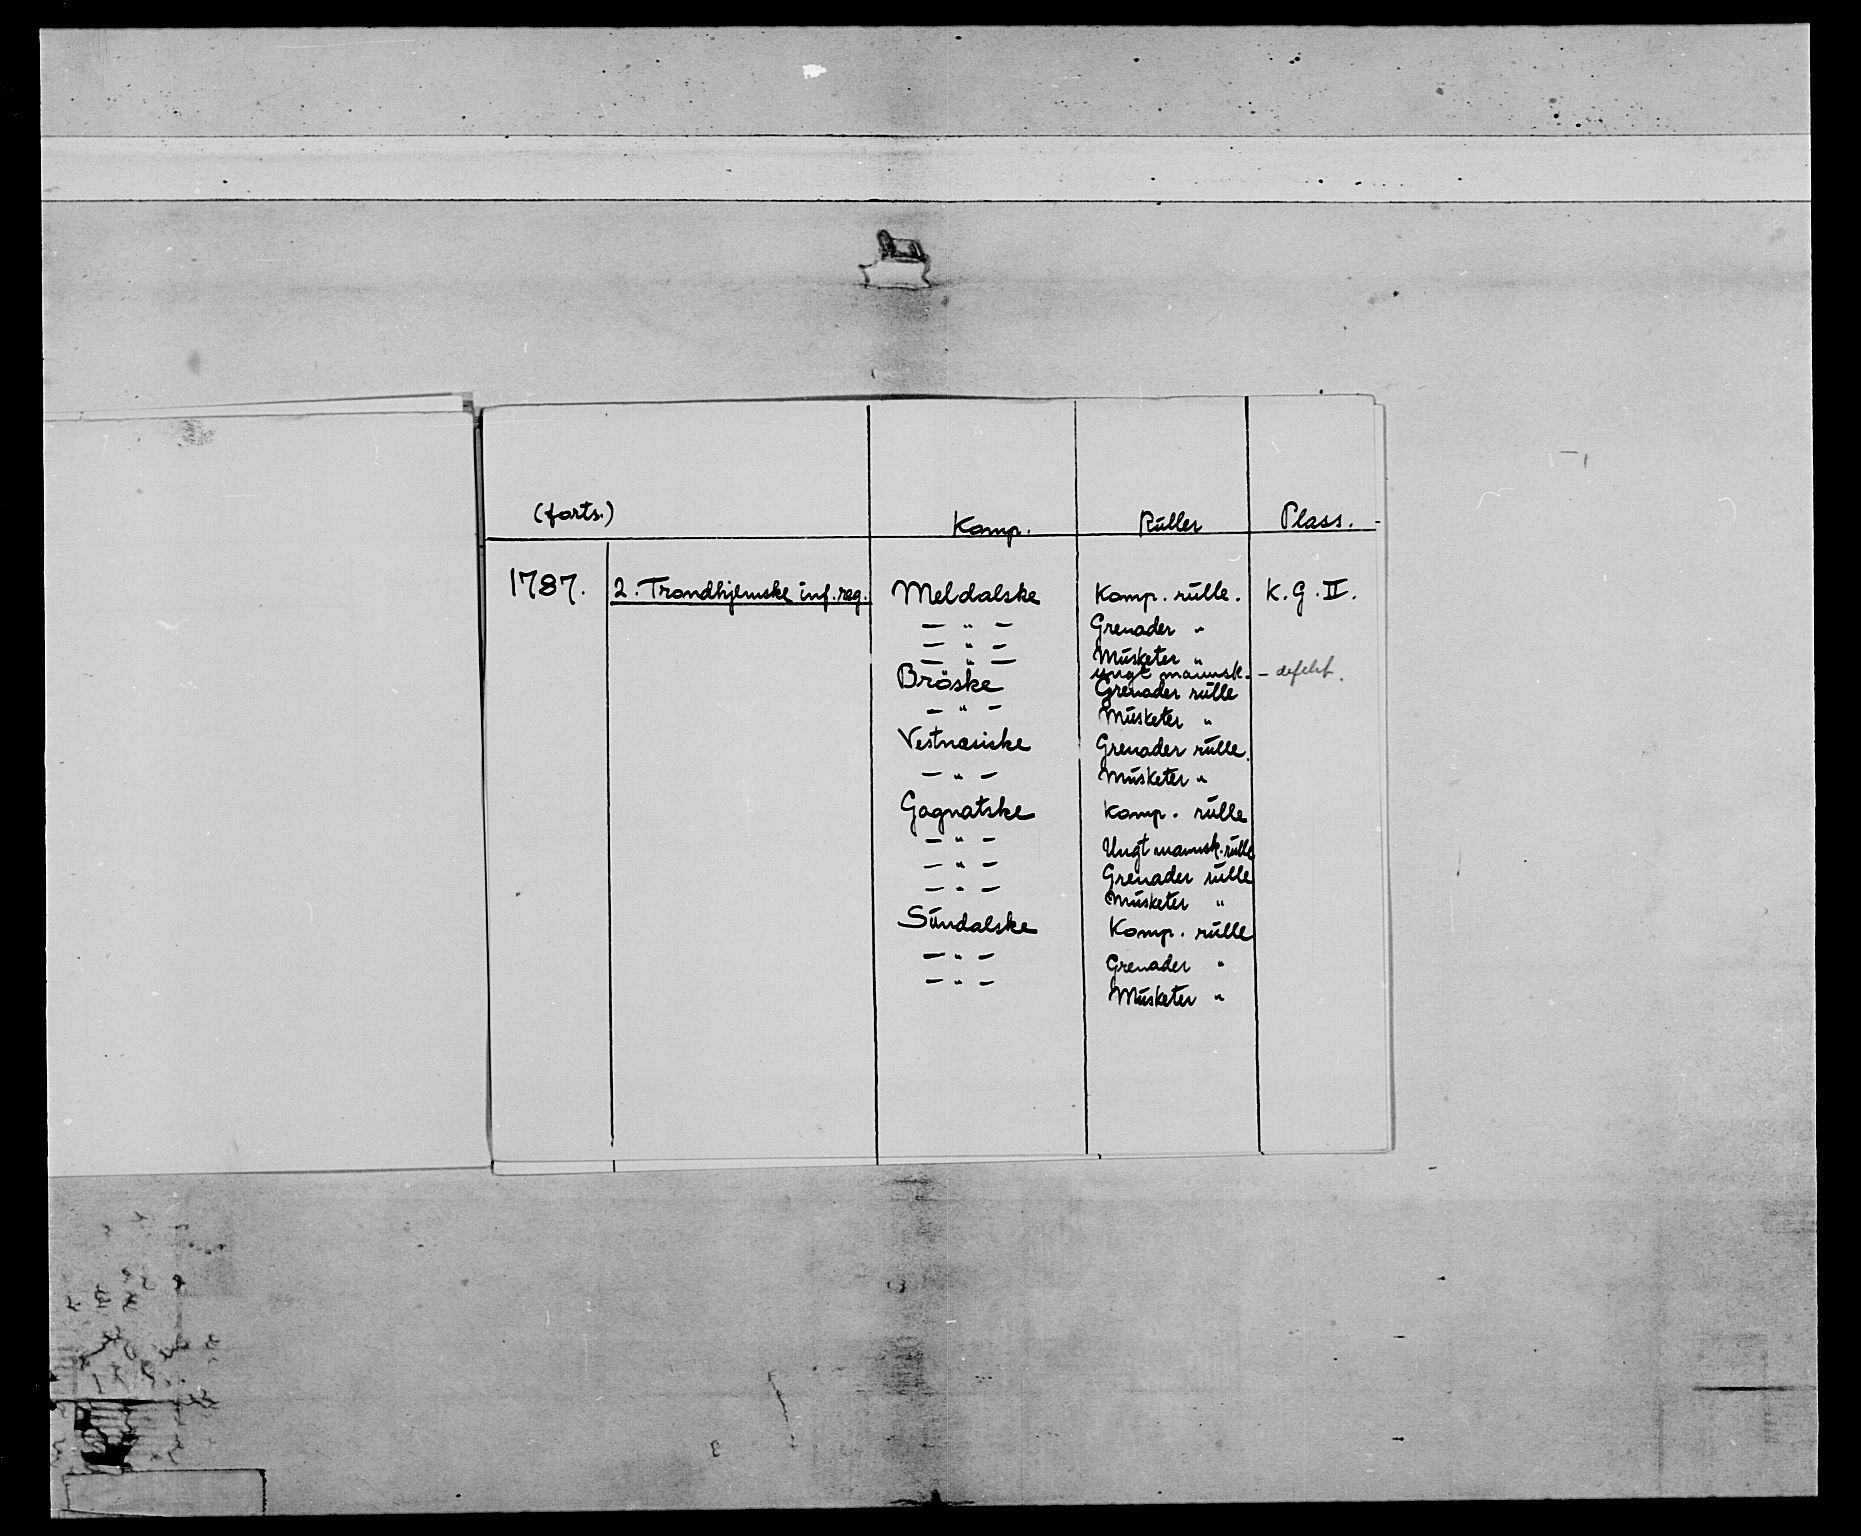 (forts.) Komp. Rúller Plass.
1787. 2. Trondhjemske inf. reg. Meldalske Komp. rúlle. K. G. II.
— " — Grenader "
— " — Músketer "
— " — Ungt mannsk. — defekt.
Bröske Grenader rúlle
— " — Músketer "
Vestnæsiske Grenader rúlle.
— " — Músketer "
Gagnatske Komp. rúlle
— " — Ungt mannsk. rúlle
— " — Grenader rúlle
— " — Músketer "
Súndalske Komp. rúlle
— " — Grenader "
— " — Músketer "